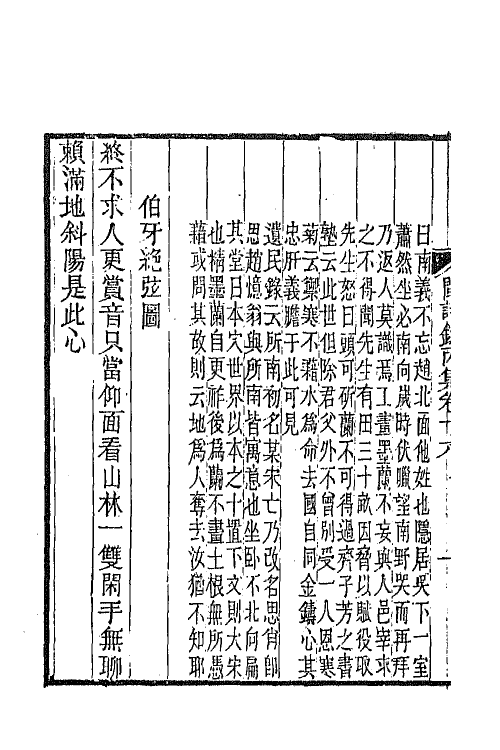 曰南義不忘趙北面他姓也隱居吳下一室
蕭然坐必南向歲時伏臘望南野哭而再拜
乃返人莫識焉工畫墨蘭不妄與人邑宰求
之不得聞先生有田三十畝因脅以賦役取
先生怒曰頭可斫蘭不可得過齊子芳之書
塾云此世但除君父外不曾别受一人恩寒
菊云禦寒不藉水為命去國自同金鑄心其
忠肝義膽于此可見
遺民錄云所南初名某宋亡乃改名思肖即
思趙憶翁與所南皆寓意也坐卧不北向扁
其堂曰本穴世界以本之十置下文則大宋
也精墨蘭自更祚後為蘭不畫土根無所憑
藉或問其故則云地為人奪去汝猶不知耶
伯牙絶弦圖
終不求人更賞音只當仰面看山林一雙閑手無聊
賴滿地斜陽是此心